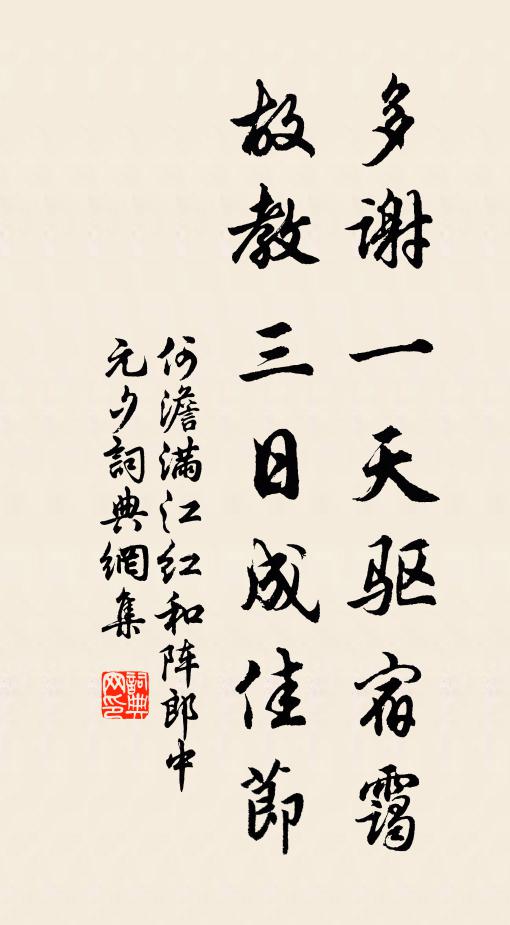 多谢一天驱宿霭
故教三日成佳節
何澹满江红和阵郎中
元夕詞典網集
詞典网印